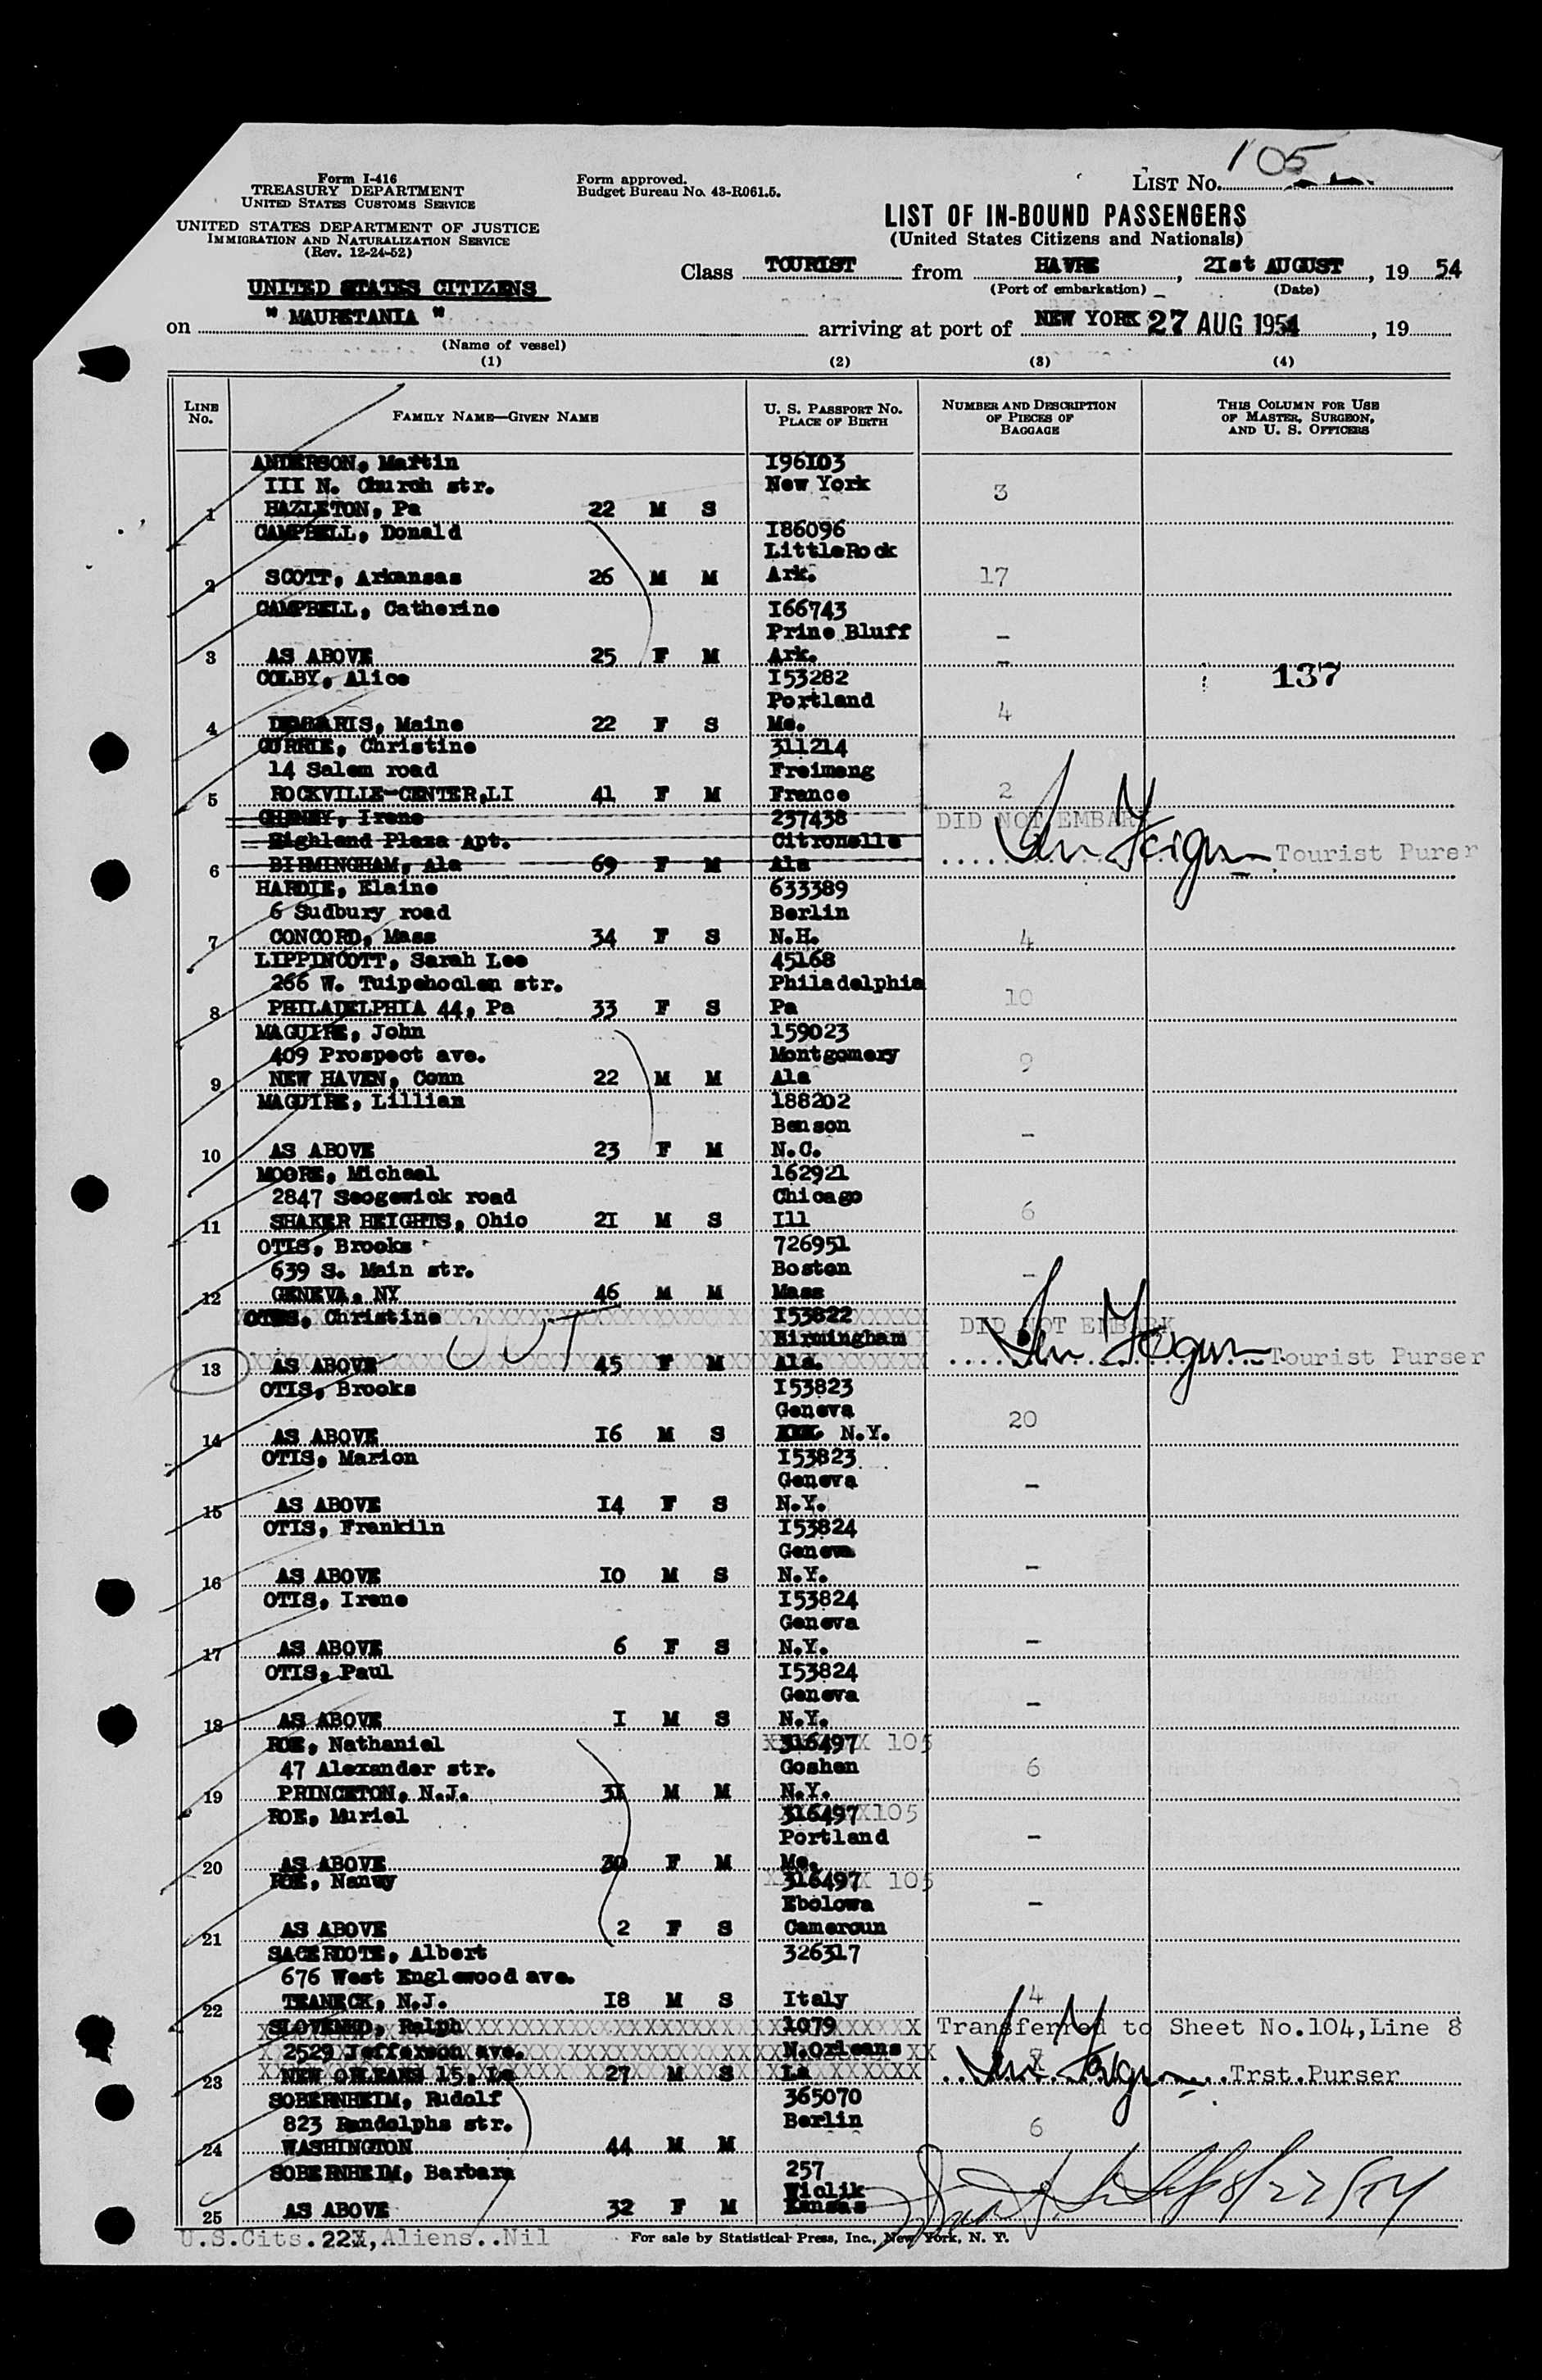 105
Form I-416
TREASURY DEPARTMENT
UNITED STATES CUSTOMS SERVICE
Form approved.
Budget Bureau No. 43-R061.5.
LIST NO.
UNITED STATES DEPARTMENT OF JUSTICE
IMMIGRATION AND NATURALIZATION SERVICE
(Rev. 12-24-52)
LIST OF IN-BOUND PASSENGERS
(United States Citizens and Nationals)
Class TOURIST from HAVRE, 21st AUGUST, 19 54
(Port of embarkation) (Date)
UNITED STATES CITIZENS
on " MAURETANIA " arriving at port of NEW YORK 27 AUG 1954, 19
(Name of vessel)
(1) (2) (3) (4)
LINE NO. FAMILY NAME—GIVEN NAME U. S. PASSPORT NO. PLACE OF BIRTH NUMBER AND DESCRIPTION OF PIECES OF BAGGAGE THIS COLUMN FOR USE OF MASTER, SURGEON, AND U. S. OFFICERS
ANDERSON, Martin I96I03
III N. Church str. New York 3
1 HAZLETON, Pa 22 M S
CAMPBELL, Donald I86096
LittleRock
2 SCOTT, Arkansas 26 M M Ark. 17
CAMPBELL, Catherine I66743
Prine Bluff -
3 AS ABOVE 25 F M Ark. -
COLBY, Alice I53282 137
Portland 4
4 , Maine 22 F S Me.
CURRIE, Christine 311214
14 Salem road Freimeng
5 ROCKVILLE-CENTER,LI 41 F M France 2
, Irene 237438 DID NOT EMBARK
Highland Plaza Apt. Citronelle
6 BIRMINGHAM, Ala 69 F M Ala Tourist Purer
HARDIE, Elaine 633389
6 Sudbury road Berlin
7 CONCORD, Mass 34 F S N.H. 4
LIPPINCOTT, Sarah Lee 45168
266 W. Tulpehoolen str. Philadelphia 10
8 PHILADELPHIA 44, Pa 33 F S Pa
MAGUIRE, John 159023
409 Prospect ave. Montgomery 9
9 NEW HAVEN, Conn 22 M M Ala
MAGUIRE, Lillian 188202
Benson -
10 AS ABOVE 23 F M N.C.
MOORE, Micheal 162921
2847 Seogewick road Chicago 6
11 SHAKER HEIGHTS, Ohio 2I M S Ill
OTIS, Brooks 726951
639 S. Main str. Boston -
12 GENEVA, NY 46 M M Mass
OTIS, Christine I53822 DID NOT EMBARK
OUT Birmingham
13 AS ABOVE 45 F M Ala. Tourist Purser
OTIS, Brooks I53823
Geneva 20
14 AS ABOVE I6 M S N.Y.
OTIS, Marion I53823
Geneva -
15 AS ABOVE I4 F S N.Y.
OTIS, Frankiln I53824
Geneva -
16 AS ABOVE IO M S N.Y.
OTIS, Irene I53824
Geneva -
17 AS ABOVE 6 F S N.Y.
OTIS, Paul I53824
Geneva -
18 AS ABOVE I M S N.Y.
ROE, Nathaniel 316497 105
47 Alexander str. Goshen 6
19 PRINCETON, N.J. 3I M M N.Y.
ROE, Muriel 316497 105
Portland -
20 AS ABOVE 30 F M Me.
ROE, Nancy 316497 105
Ebolowa -
21 AS ABOVE 2 F S Cameroun
SACERDOTE, Albert 326317
676 West Englewood ave.
22 TEANECK, N.J. I8 M S Italy 4
SLOVENKO, Ralph 1079 Transferred to Sheet No.104,Line 8
2529 Jefferson ave. N.Orleans
23 NEW ORLEANS 15, La 27 M S La Trst.Purser
SOBERNHEIM, Rudolf 365070
823 Randolphs str. Berlin 6
24 WASHINGTON 44 M M
SOBERNHEIM, Barbara 257
Wiclik
25 AS ABOVE 32 F M Kansas 8/27/54
U.S.Cits.22, Aliens..Nil For sale by Statistical Press, Inc., New York, N. Y.